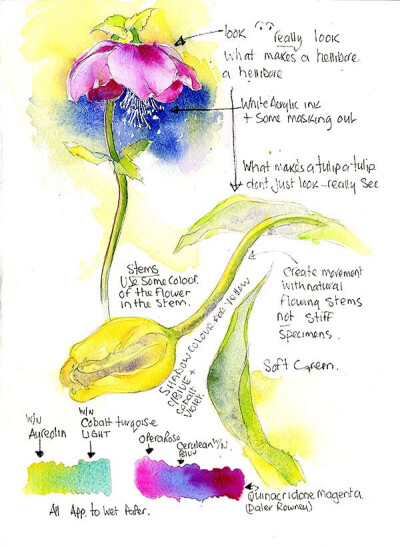 look "" really look
What makes a hellibore
a hellibore
White Acrylic ink
+ Some masking out
What makes a tulip a tulip
dont just look - really see
Stems
Use Some colour
of the flower
in the Stem.
Create movement
with natural
flowing stems
not stiff
specimens.
SHADOW COLOUR FOR Yellow
C/BLUE +
Cobalt
Violet.
Soft Green.
W/N
Aureolin
W/N
Cobalt turqoise
LIGHT
Opera Rose
Cerulean W/N.
Blue
Quinacridone Magenta
(Daler Rowney)
All App. to Wet Paper.